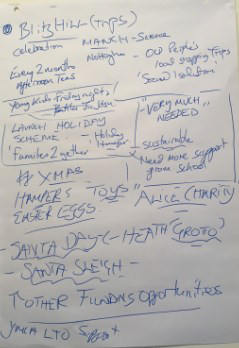 Blitz Hill (TRIPS)
celebration MANCH - Science
- Old People's
local shopping trips
'Social isolation'
Every 2 months
Afternoon Teas
Young Kids Friday nights
"VERY MUCH
NEEDED"
LAUNCH HOLIDAY
SCHEME - Holiday
Hunger
'Families 2gether'
sustainable
Need more support
from school
# XMAS
HAMPERS TOYS "ALICE CHARITY
EASTER EGGS.
- SANTA DAY - HEATH (GROTO)
- SANTA SLEIGH -
↑ OTHER FUNDING Opportunities
YMCA LTD